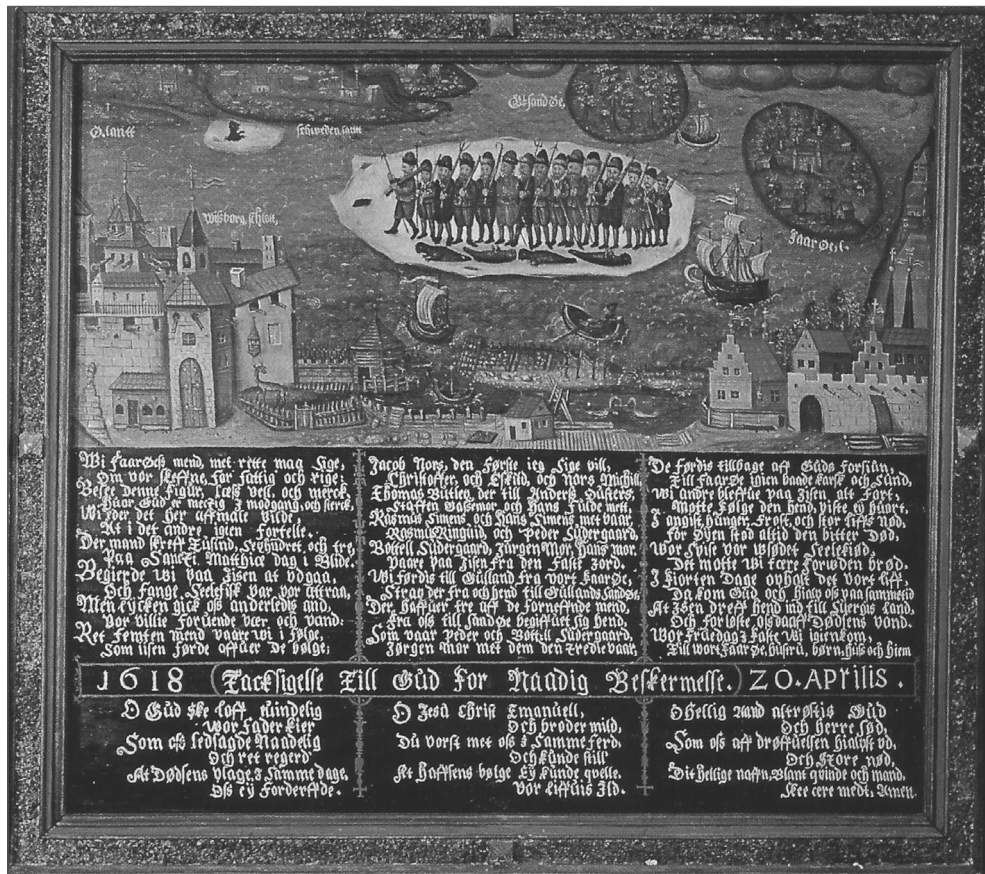 Gotsand Øe,
O.lantt
schweden lantt
Wisborg schlott,
Faar Øe,
Wi Faar Øcks mend, met rette maa sige,
Om vor skeffne, for fattig och rige;
Besee denne Figur, læss vell, och merck,
Huor Gud er mectig I modgang, och sterck,
Wi eder det her affmale vilde
At i det andre igien fortelle.
Der mand skreff Tusind, Sexhudret, och tre,
Paa Sanckt Matthice dag i Blide.
Begierde wi paa Jisen at vdgaa,
Och fange Seelefisk var vor attraa,
Men lycken gick oss anderledis and,
Vor villie foruende vær och vand:
Ret femten mend vaare wi i følge,
Som iisen førde offuer de bølge;
Jacob Nors, den første ieg sige vill,
Christoffer, och Eskild, och Nors Michill,
Thomas Butleg, der till Anders Østers,
Staffen Gassemor, och Hans Fulde mett,
Rasmus Simens, och Hans Simens met vaar,
Rasmus Ringuid, och Peder Sudergaard,
Bottell Sudergaard, Jürgen Mor, Hans mor
Vaare paa Jisen fra den faste Jord.
Wi førdis till Gulland fra vort Faar Øe,
Strax der fra och hend till Gullands Sandøe:
Der haffuer tre aff de forneffnde mend,
Fra oss till Sandøe begiffuet sig hend,
Som vaar Peder och Bottill Sudergaard,
Jørgen Mor met dem den tredie vaar,
De førdis tilbage aff Guds forsiun,
Till Faar Øe igien baade karsk och sund,
Wi andre bleffue paa Jisen alt fort,
Motte følge den hend, viste ey huort,
I angist, hunger, frost, och stor liffs nød,
For øyen stod altid den bitter død,
Wor Spise vor wsødet Seelekiød,
Det motte wi tære forwden brød.
I fiorten Dage opholt det vort liff,
Da kom Gud och hialp oss paa sammetid
At Isen dreff hend ind till Suergis Land,
Och forløste oss da aff Dødsens vond.
Wor Fruedag I faste wi igienkom,
Till wort Faar Øe, hustru, børn, huss och hiem
1618 (Tacksigelse Till Gud for Naadig Beskermelse.) 20. Aprilis.
O Gud ske loff mindelig
Wor Fader kier
Som oss ledsagde Naadelig
Och ret regerd
At Dødsens plage, I samme dage,
Oss ey forderffde.
O Jesu Christ Emanuell,
Och broder mild,
Du vorst met oss I samme ferd,
Och kunde still
At haffsens bølge Ey kunde quelle
Vor liffuis Ild.
O Hellig Aand altrøstis Gud
Och herre sød,
Som oss aff drøffuelsen hialpst vd,
Och Store nød,
Dit hellige naffn, Blant quinde och mand,
Skee ære medt, Amen